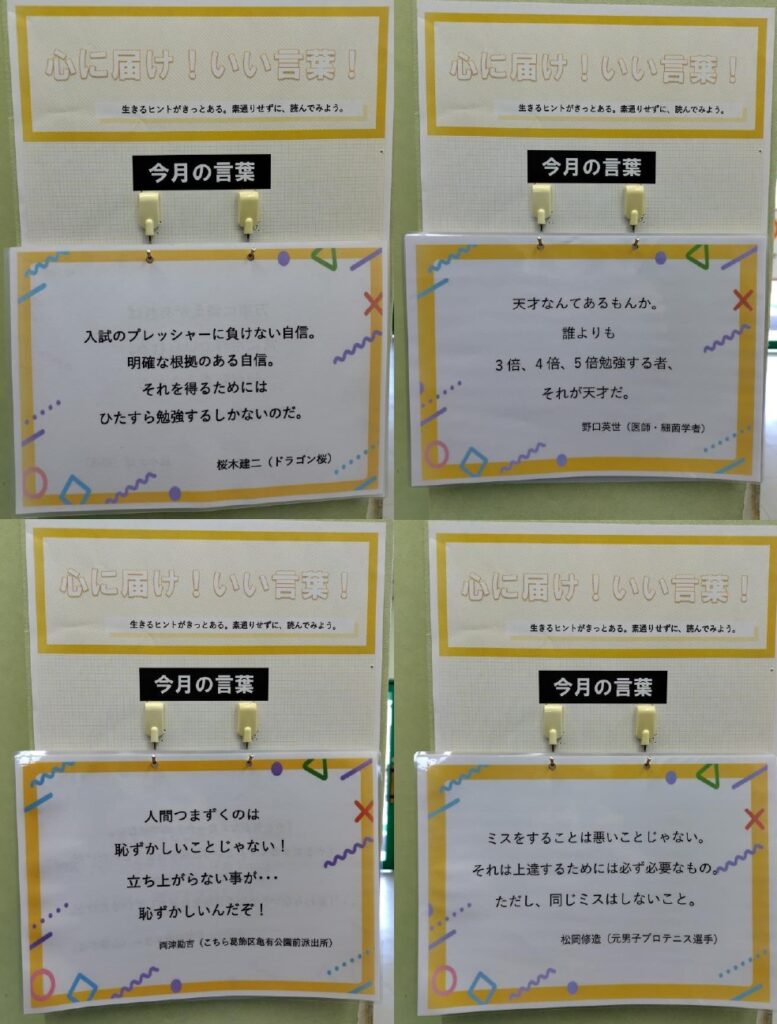 心に届け！いい言葉！
生きるヒントがきっとある。素通りせずに、読んでみよう。
今月の言葉
入試のプレッシャーに負けない自信。
明確な根拠のある自信。
それを得るためには
ひたすら勉強するしかないのだ。
桜木建二（ドラゴン桜）
心に届け！いい言葉！
生きるヒントがきっとある。素通りせずに、読んでみよう。
今月の言葉
天才なんてあるもんか。
誰よりも
３倍、４倍、５倍勉強する者、
それが天才だ。
野口英世（医師・細菌学者）
心に届け！いい言葉！
生きるヒントがきっとある。素通りせずに、読んでみよう。
今月の言葉
人間つまずくのは
恥ずかしいことじゃない！
立ち上がらない事が・・・
恥ずかしいんだぞ！
両津勘吉（こちら葛飾区亀有公園前派出所）
心に届け！いい言葉！
生きるヒントがきっとある。素通りせずに、読んでみよう。
今月の言葉
ミスをすることは悪いことじゃない。
それは上達するためには必ず必要なもの。
ただし、同じミスはしないこと。
松岡修造（元男子プロテニス選手）